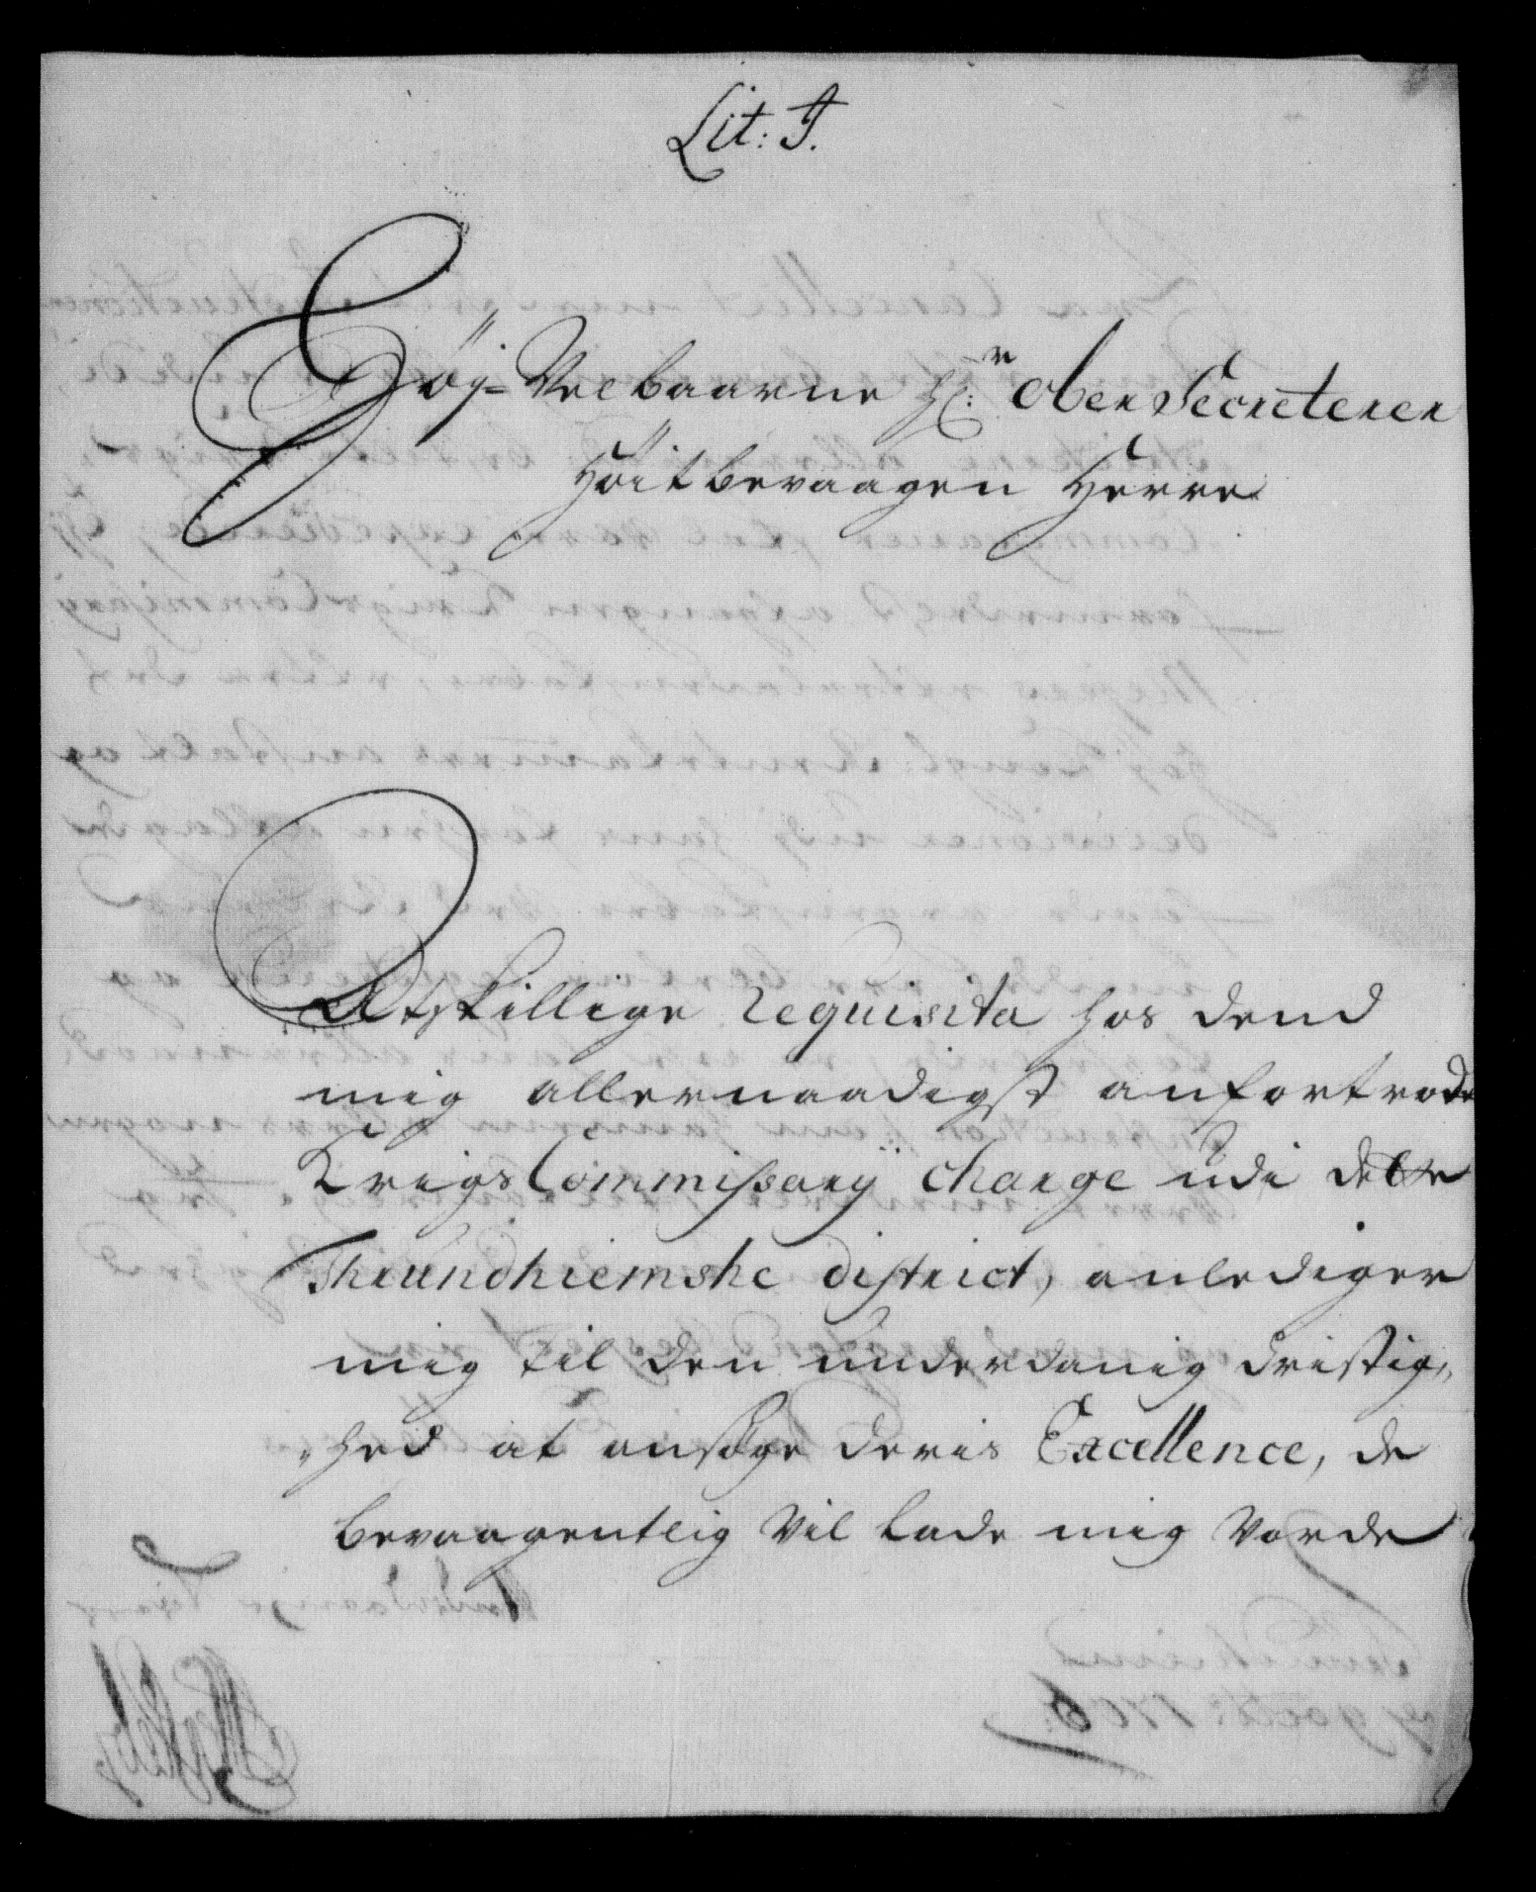 Lit: I.
Høÿ-Velbaarne Hr: Ober Secreterer
Høitbevaagen Herre
Atskillige requisita hos dend
mig allernaadigst anfortrode
KrigsCommißarij charge udi dette
Thrundhiemske district, anlediger
mig til den underdanig dristig„
„hed at ansøge deris Excellence, de
bevaagentlig vil lade mig vorde